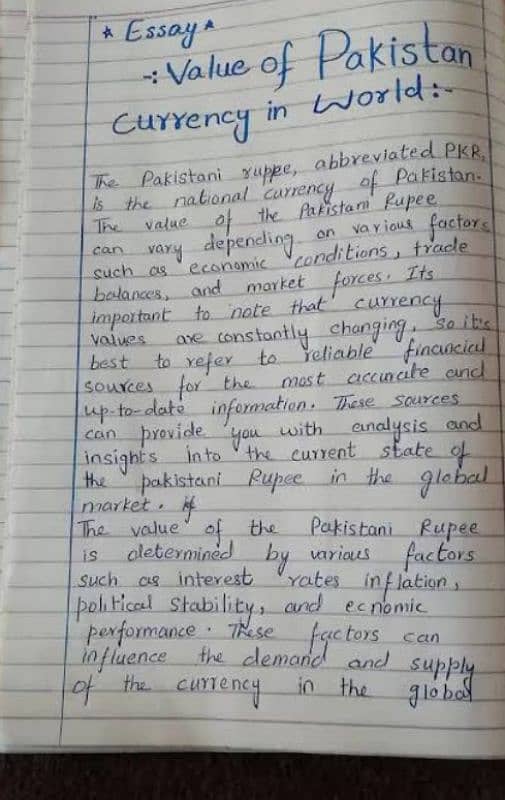 * Essay *
-: Value of Pakistan
Currency in World:-
The Pakistani ruppe, abbreviated PKR,
is the national currency of Pakistan.
The value of the Pakistani Rupee
can vary depending on various factors
such as economic conditions, trade
balances, and market forces. Its
important to note that currency
values are constantly changing, so it's
best to refer to reliable financial
sources for the most accurate and
up-to-date information. These sources
can provide you with analysis and
insights into the current state of
the pakistani Rupee in the global
market.
The value of the Pakistani Rupee
is determined by various factors
such as interest rates inflation,
political stability, and ecnomic
performance. These factors can
influence the demand and supply
of the currency in the global